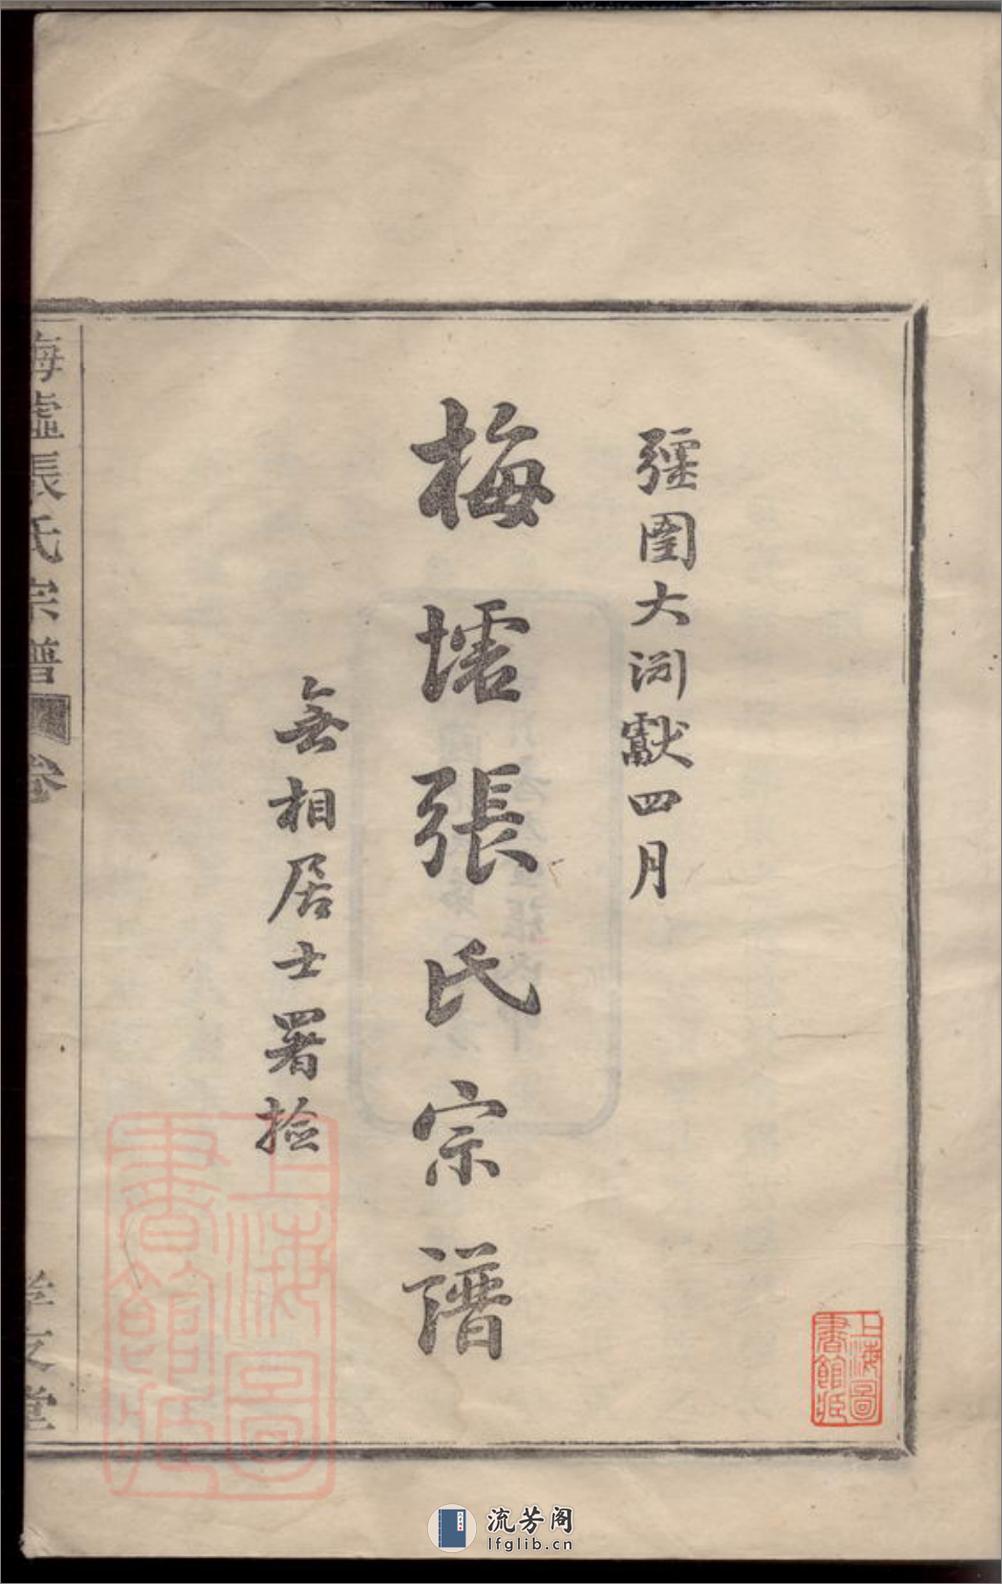 彊圉大淵獻四月
梅墟張氏宗譜
無相居士署檢
梅墟張氏宗譜
卷
孝友堂
上海圖書館藏
上海圖書館藏
流芳阁
lfglib.cn